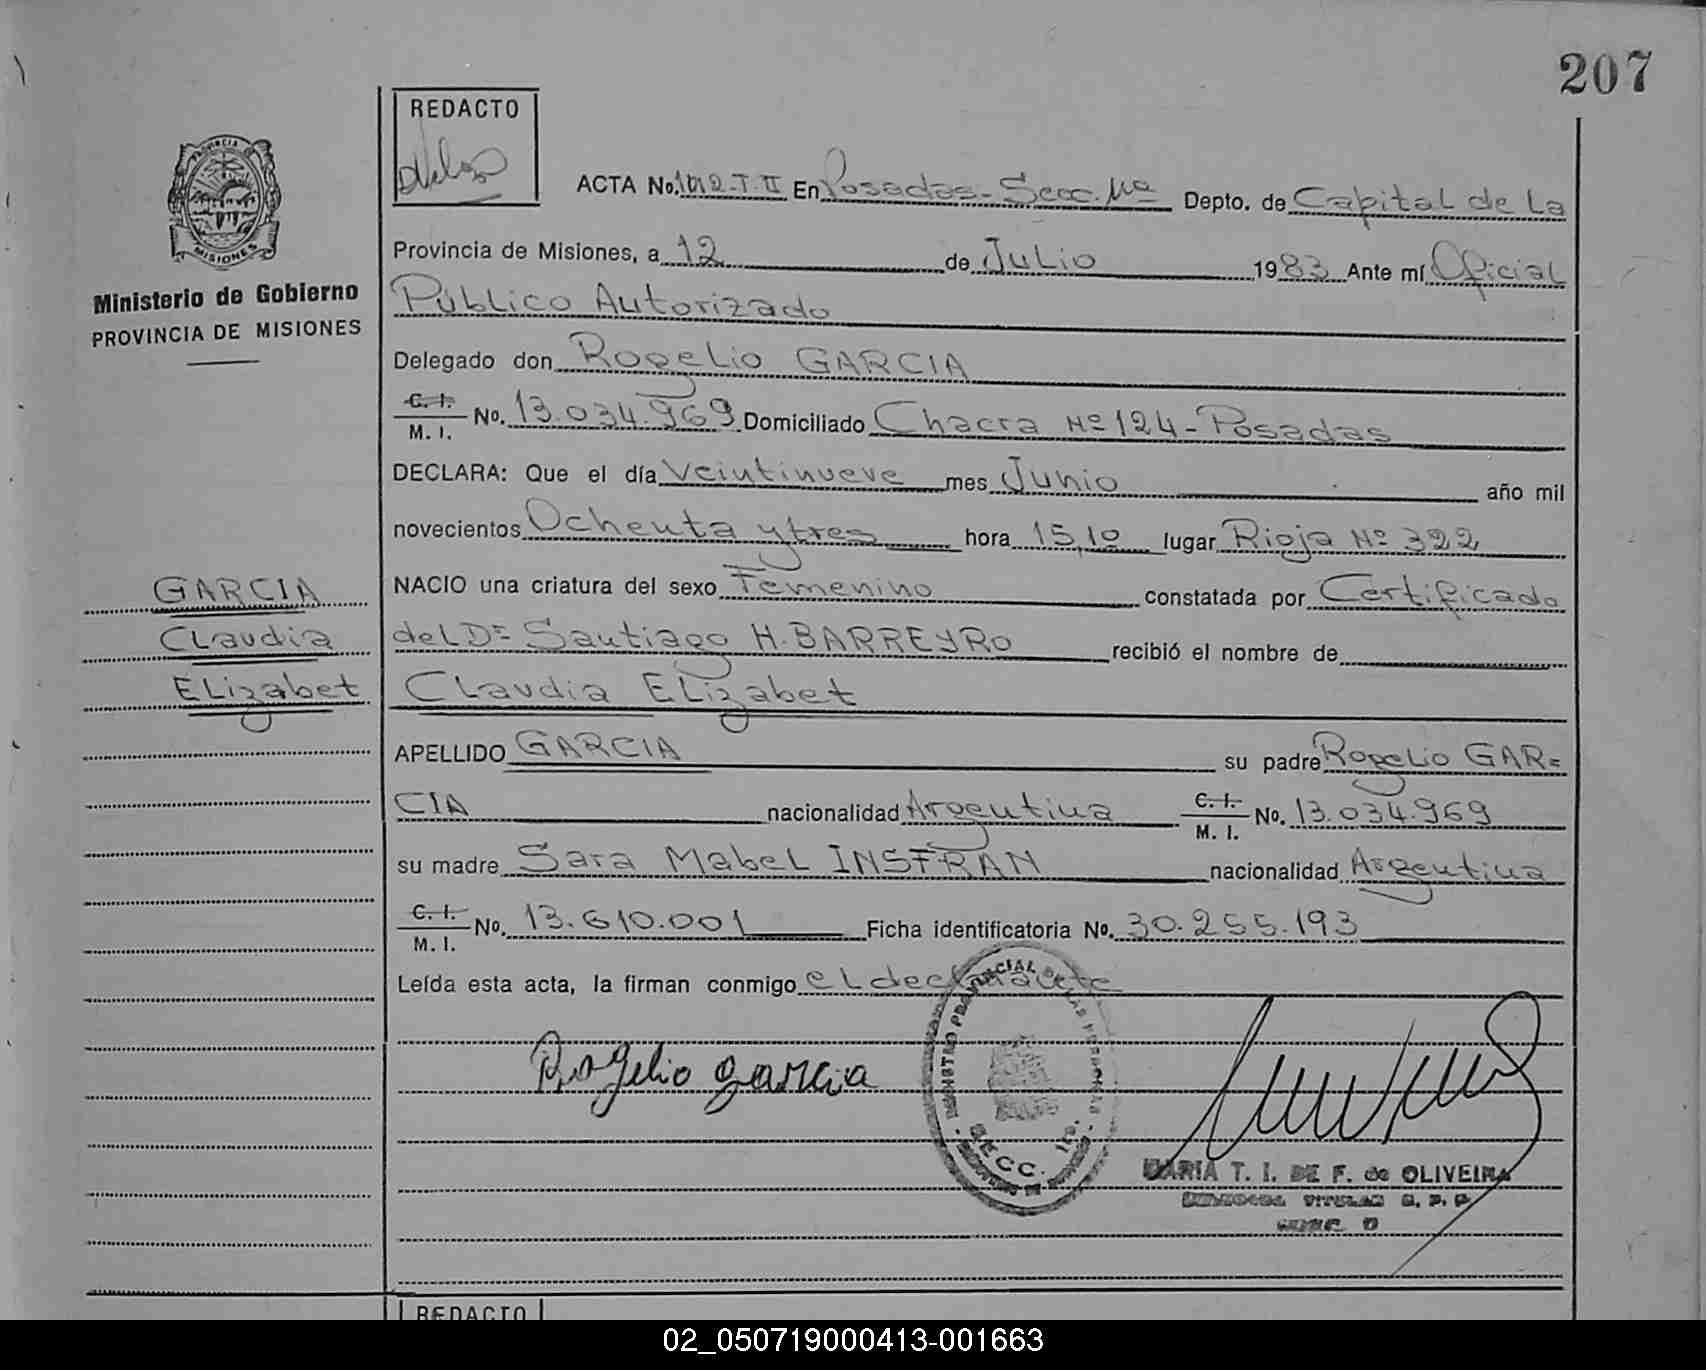 207
REDACTO
PROVINCIA DE
MISIONES
Ministerio de Gobierno
PROVINCIA DE MISIONES
ACTA No. 1012-T.II En Posadas-Secc. 1ª Depto. de Capital de La
Provincia de Misiones, a 12 de Julio 1983 Ante mí Oficial
Público Autorizado
Delegado don Rogelio GARCIA
C. I.
M. I. No. 13.034.969 Domiciliado Chacra Nº 124-Posadas
DECLARA: Que el día Veintinueve mes Junio año mil
novecientos Ochenta y tres hora 15,10 lugar Rioja Nº 322
NACIO una criatura del sexo Femenino constatada por Certificado
del Dr Santiago H. BARREYRO recibió el nombre de
Claudia Elizabet
APELLIDO GARCIA su padre Rogelio GAR=
CIA nacionalidad Argentina C. I. M. I. No. 13.034.969
su madre Sara Mabel INSFRAN nacionalidad Argentina
C. I.
M. I. No. 13.610.001 Ficha identificatoria No. 30.255.193
Leída esta acta, la firman conmigo el declarante
GARCIA
Claudia
Elizabet
Rogelio garcia
REGISTRO PROVINCIAL DE LAS PERSONAS
SECC. 1ra.
MARIA T. I. DE F. de OLIVEIRA
REDACTO
02_050719000413-001663